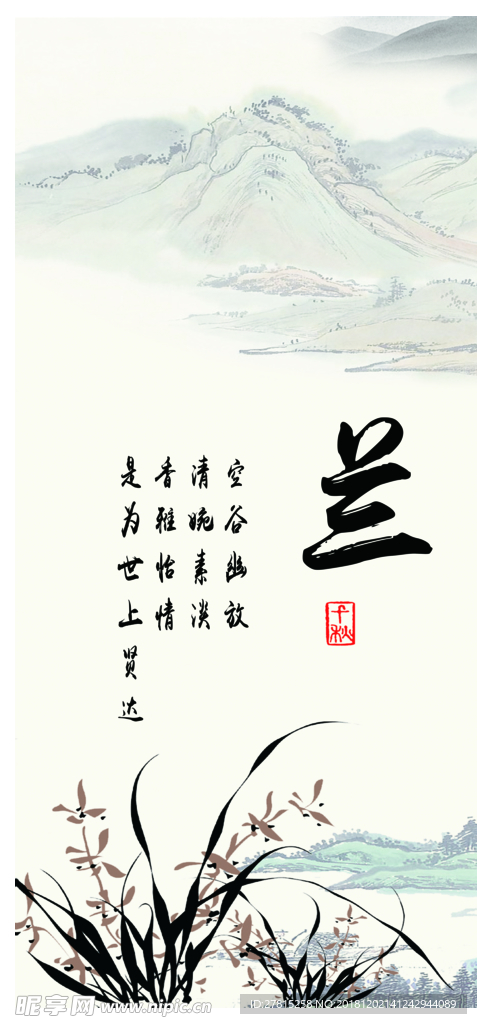 兰
千秋
空谷幽放
清婉素淡
香雅怡情
是为世上贤达
昵享网 www.nipic.cn
ID:27815258 NO:20181202141242944089